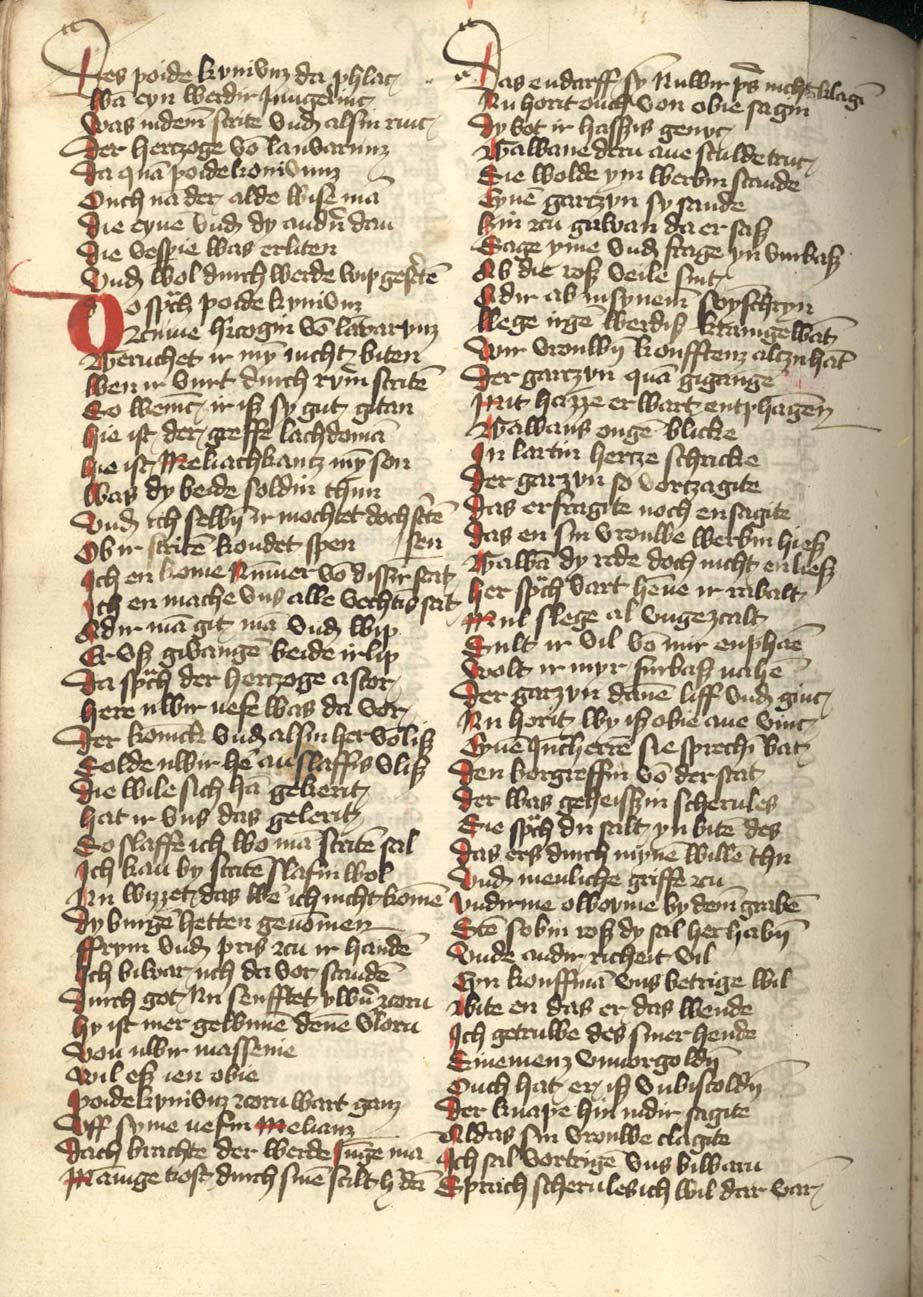 Des poide kyniůnz da phlac
Wā eyn werdir jungelinc
Was indem strite vnd alsin rinc
Der hertzoge vō lanvarunz
Da quā poidekonivunz
Ouch nā der alde wise mā
Die eyne vnd dy andn̄ dan
Die vespie was erliten
Vnd wol durch werde wip gestritē
Do sp̄ch poide kyniůnz
zcu hercogin vō lāvarynz
Geruchet ir myn nicht biten
Wen ir vurt durch rym stritē
So wenit ir iß sy gut gitan
hie ist der greffe lachdomā
hie ist Meliachkantz myn son
Was dy beide soldin thun
Vnd ich selbir ir mochtet doch sen
Ob ir stritē kondet spen
Ich en kome nīmer vō dissir stat
Ich en mache vns alle vechtis sat
Adir mā git mā vnd wip
Er vß givangē beide ir lip
Da sp̄ch der hertzoge astor
here uwir nefe was da vor
Der konick vnd alsin her vō liß
Solde uwir her an slaffis vliß
Die wile sich hā gekerit
hat ir vns das gelerit
So slaffe ich wo mā stritē sal
Ich kan by stritē slafin wol
Nu wizzet das wer ich nicht komē
Dy burgē hetten genomen
ffrym vnd pris zcu ir handē
Ich bewar uch da vor standē
Durch got nu senfftet uwirn zcorn
hy ist mer gewunnē dene vlorn
Von uwir massenie
wil eß ien obie
poidekyniůnz zcorn wart ganz
Uff syme nefin Melianz
Dach brachte der werde junge mā
Manige tiost durch sine schilt h dā
Das endarff sy nuwir ps̄ nicht clagē
Nu horit ouch von obie sagin
Dy bot ir hassis genuc
Gawane deru ane sculde truc
Sie wolde ym werbin scande
Eynē gartzyn sy sande
hin zcu gawan da er saß
Sage yme vnd frage yn vurbaß
Ab die roß veile sint
Adir ab in synem soymschryn
Wege irgē werdiß kramgewāt
Wir vrouwin koufftenz alczuhāt
Der gartzyn quā gigange
Mit hazze er wart entphagen
Gawans ougē blicke
In lartin hertze schricke
Der garzyn so vortzagite
Das er fragite noch en sagite
Das en sin vrouwe werbin hieß
Gawā dy rede doch nicht en ließ
her sp̄ch vart hēne ir ribalt
Mul slege al vngezcalt
Sult ir vil vō mir enphaē
Wolt ir myr furbaß nahē
Der garzyn dane liff vnd ginc
Nu horit wy iß obie ane vinc
Eynē Junchern sie sprechī bat
Den borgreffin vō der stat
Der was geheissin scherules
Sie sp̄ch du salt yn bitē des
Das ers durch mynē willē thu
Vnd menliche griffe zcu
Vndirme olboyme by dem grabē
Stē sobin roß dy sal her habin
Vnde andir richeit vil
Eyn kouffmā vns betrige wil
Bite en das er das wende
Ich getruwe des siner hende
Sinemenz vnvorgoldin
Ouch hat er iß vnbischoldin
Der knape hin nidir sagite
Aldas sin vrouwe clagite
Ich sal vortrigē vns biwarn
Sprach scherules ich wil dar var